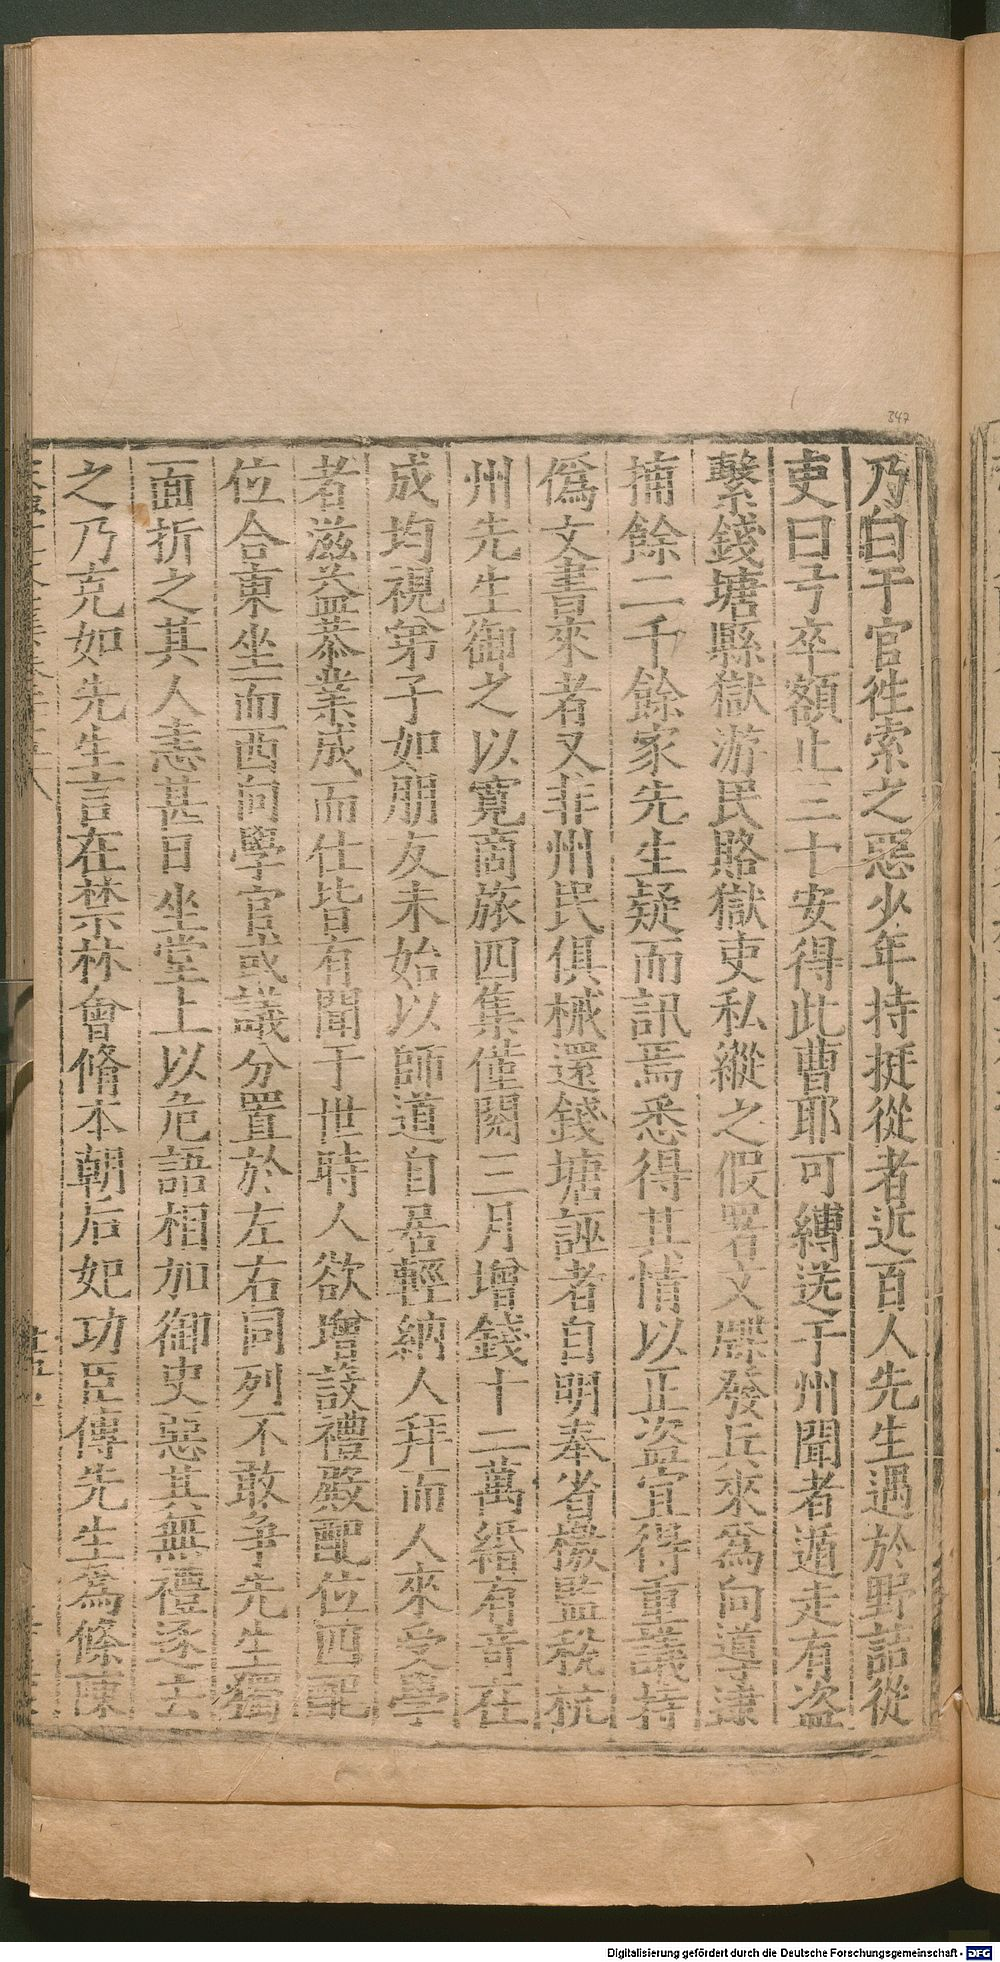 347
乃白于官徃索之惡少年持挺從者近百人先生遇於野詰從
吏曰弓卒額止三十安得此曹耶可縛送于州聞者遁走有盗
繫錢塘縣獄游民賂獄吏私縱之假署文牒發兵來爲向道逮
捕餘二千餘家先生疑而訊焉悉得其情以正盗宜得重議持
僞文書來者又非州民俱械還錢塘誣者自明奉省檄監税杭
州先生御之以寛商旅四集僅閱三月增錢十二萬緡有奇在
成均視第子如朋友未始以師道自居輕納人拜而人來受學
者滋益恭業成而仕皆有聞于世時人欲增設禮殿配位四配
位合東坐而西向學官或議分置於左右同列不敢争先生獨
面折之其人恚甚日坐堂上以危語相加御史惡其無禮逐去
之乃克如先生言在禁林會脩本朝后妃功臣傳先生爲條陳
Digitalisierung gefördert durch die Deutsche Forschungsgemeinschaft - DFG